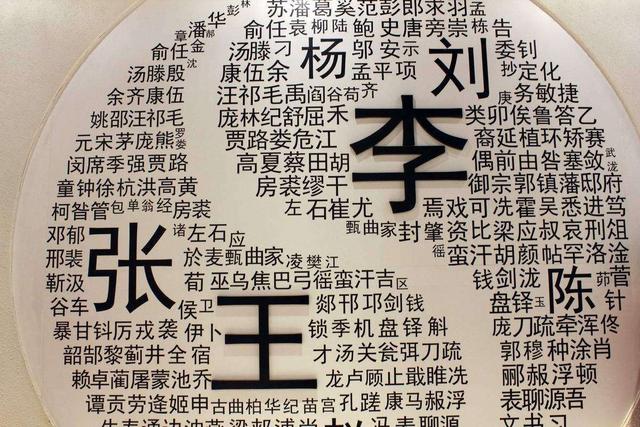 彭林
苏潘葛奚范彭郎
孟
潘郝
俞任袁柳陆鲍史唐
崇栋告
章金
俞任
汤滕刁
杨
邬安示
刘
委钊
汤滕殷沈
康伍余
孟平项
抄定化
余齐康伍
汪祁毛禹阎谷荀齐
庚务敏捷
姚邵汪祁毛
庞林纪舒屈禾
李
类卯俟鲁答乙
元宋茅庞熊罗娄
贾路娄危江
裔延植环矫赛
闵席季强贾路
高夏蔡田胡
偶前由昝塞敛武泷
童钟徐杭洪高黄
房裘缪干
御宗郭镇藩邸府
柯昝管包单翁经房裘
左石崔尤
焉戏可冼霍吴悉进笃
邓郁
张
诸左石应
甄曲家封肇资比梁应叔哀刑俎
邢裴
於麦甄曲家凌樊江
徭蛮汗胡颜帖罕洛渝
靳汲
荀巫乌焦巴弓徭蛮汗吉区
钱剑泷
陈
茆菅
谷车
侯卫
王
郯邗邛剑钱
盘铎玉
针
暴甘钭厉戎袭伊卜
锁季机盘铎斛
庞刀疏牵浑佟
韶郜黎蓟井全宿
才汤关瓮弭刀疏
郭穆种涂肖
赖卓蔺屠蒙池乔
龙卢顾止戢睢冼
郦郝浮顿
谭贡劳逄姬申古曲柏华纪苗宫孔蹉康马赧浮
表聊源吾